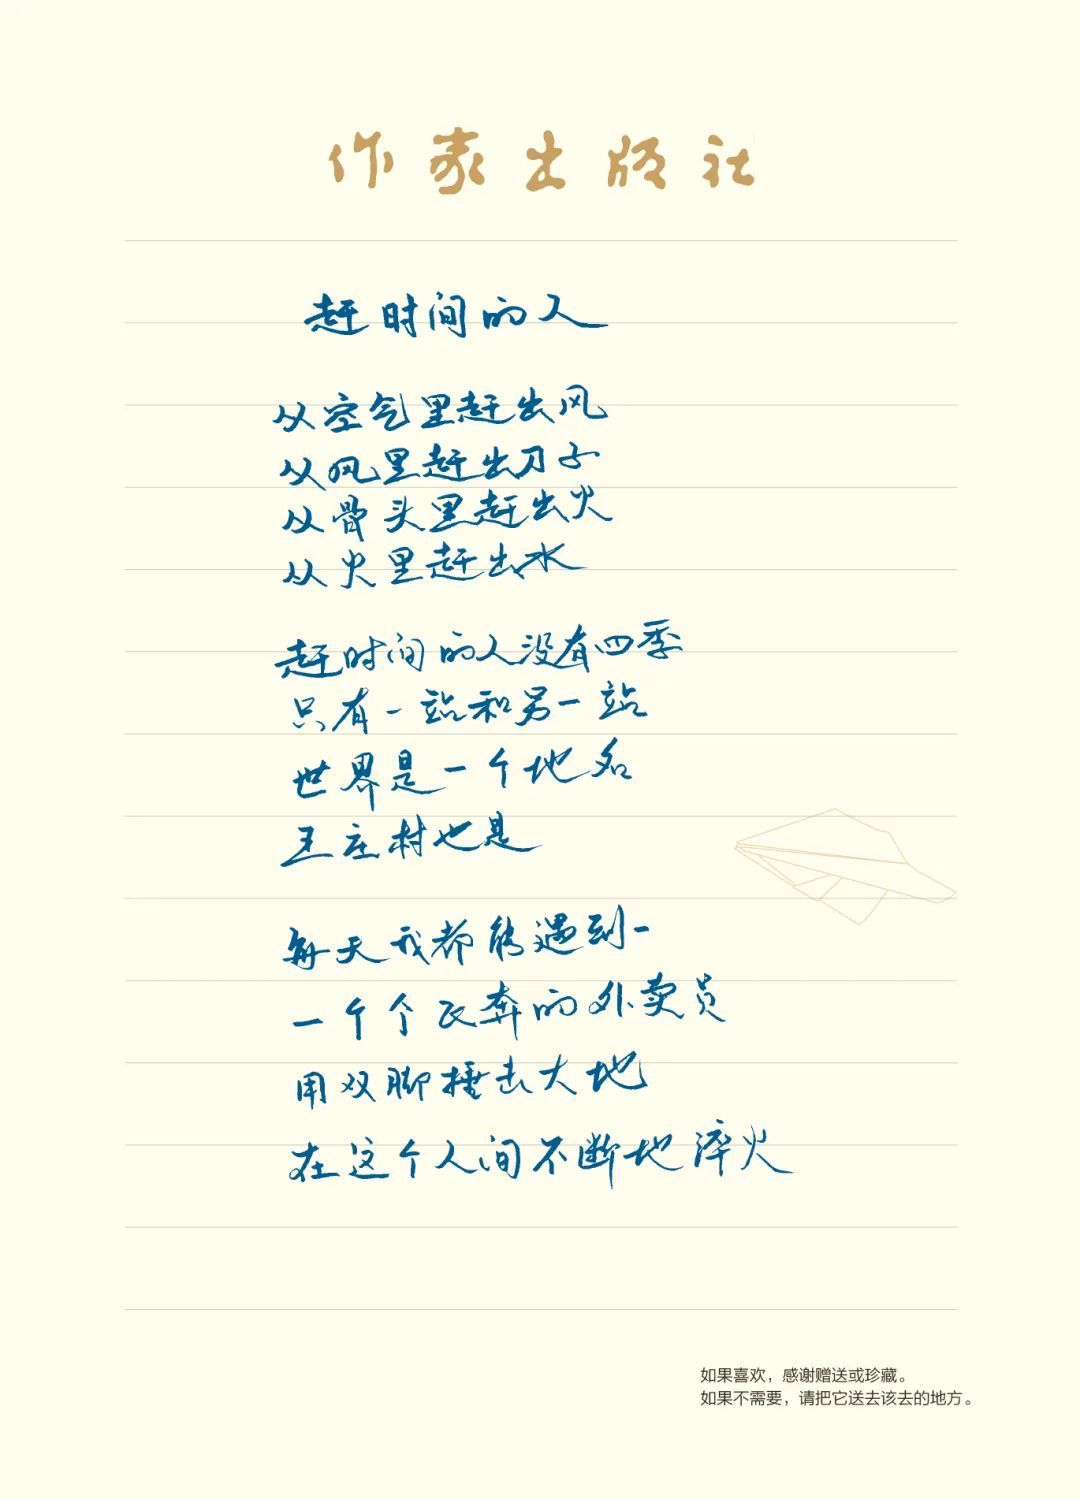 作家出版社
赶时间的人
从空气里赶出风
从风里赶出刀子
从骨头里赶出火
从火里赶出水
赶时间的人没有四季
只有一站和另一站
世界是一个地名
王庄村也是
每天我都能遇到一
一个个飞奔的外卖员
用双脚捶击大地
在这个人间不断地淬火
如果喜欢，感谢赠送或珍藏。
如果不需要，请把它送去该去的地方。